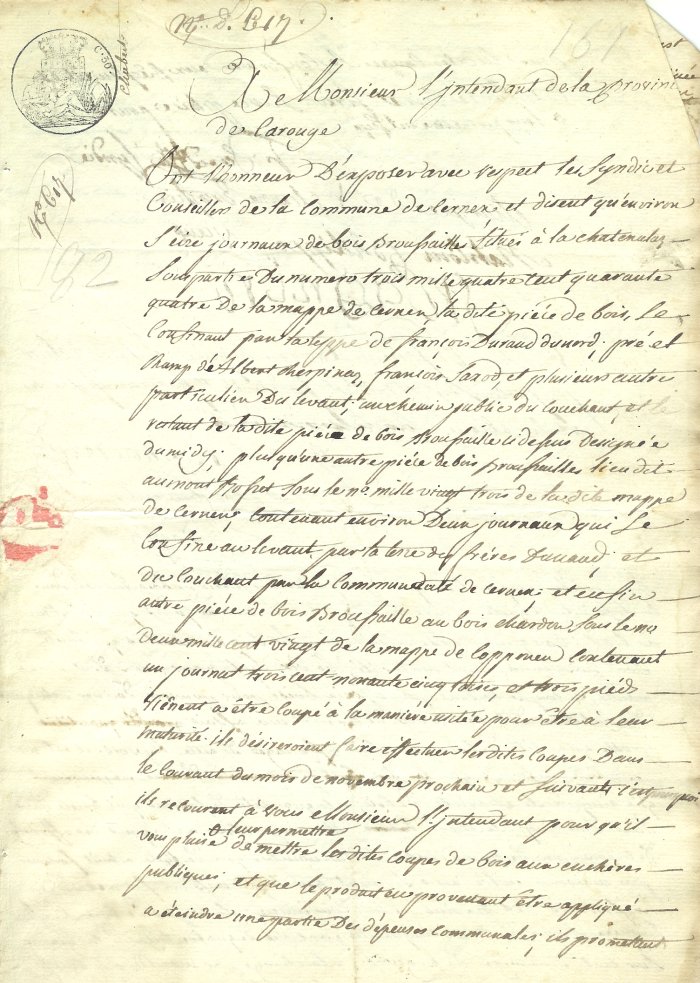 C. 50
N.º D. 617
A Monsieur l'jntendant de la Province
de Carouge
Ont l'honneur D'éxposer avec respect les Syndic et
Conseillers de la Commune de Cernex et disent qu'environ
Seize journaux de bois Broussaille Situés à la chatenulaz
Sous partie Du numero trois mille quatre cent quarante
quatre De la mappe de cernex la dite piéce de bois, Se
Confinant par la teppe de françois Duraud du nord; pré et
Champ d'Albert cherpinaz, françois Sarod, et plusieurs autre
particulier Du levant; au chemin public du Couchant, et le
restant de la dite piéce de bois Broussaille ci dessus Designée
du midy; plus qu'une autre piéce de bois Broussailles lieu dit
au mont sous le no. mille vingt trois de la dite mappe
de cernex, contenant environ Deux journaux qui Se
Confine au levant, par la terre des fréres Duraud; et
du Couchant par la Communauté de cernex; et enfin
autre piéce de bois Broussaille au bois chardon Sous le no.
Deux mille cent vingt de la mappe de Copponex Contenant
un journal trois cent nonante cinq toises, et trois pieds
viénent a être coupé à la maniére usitée pour être à leur
maturité. ils désireroient faire effectuer lesdites Coupes Dans
le Courant du mois de novembre prochain et Suivant,
ils recourent à Vous Monsieur l'jntendant pour qu'il
vous plaise leur permettre de mettre lesdites Coupes de bois aux enchères
publiques; et que le produit en provenant être appliqué
a éteindre une partie Des dépenses Communales; ils promettent
N.º 617